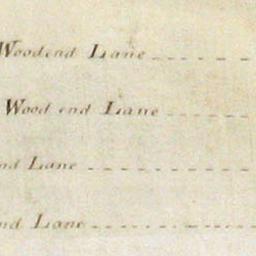 Woodend Lane
Wood end Lane
nd Lane
nd Lane